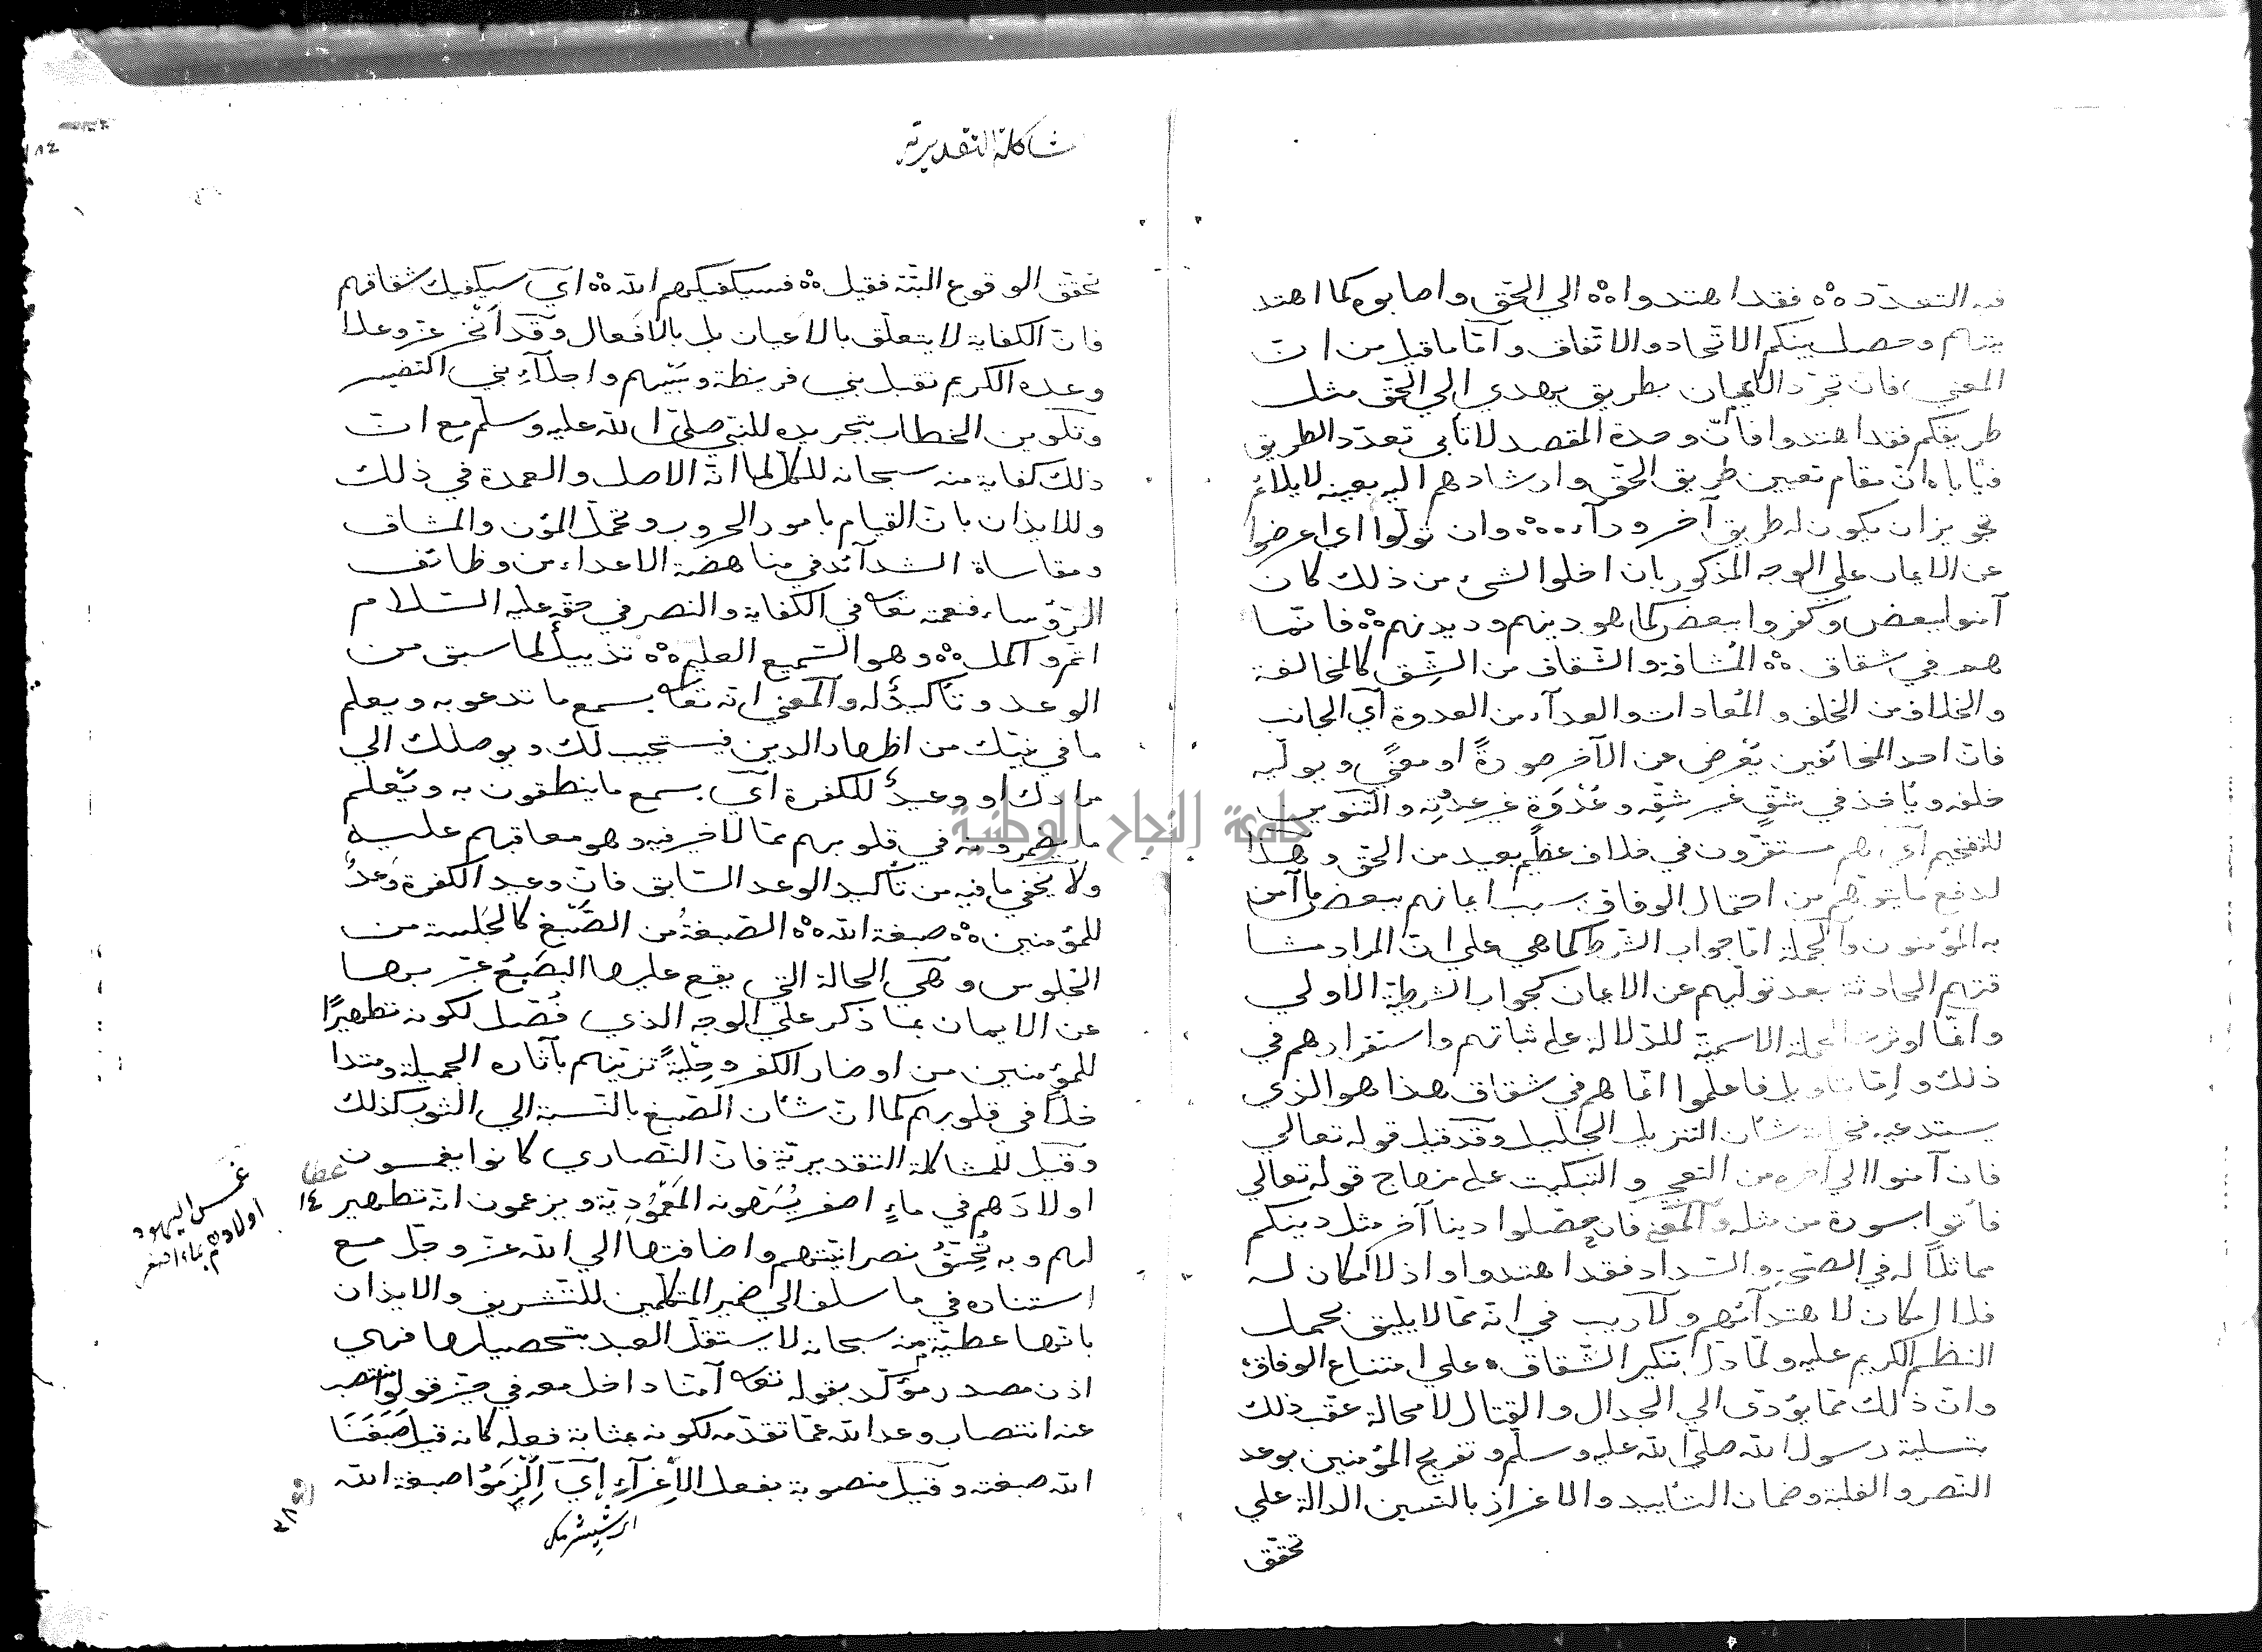 فيه التعدد ٥٥ فقد اهتدوا ٥٥ الى الحق واصابوه كما اهتد
يتم وحصل بينكم الاتحاد والاتفاق وامّا ما قيل من ان
المعنى فان تحرّوا الايمان بطريق يهدي الى الحق مثل
طريقكم فقد اهتدوا فانّ وحدة المقصد لا تأبى تعدّد الطريق
فيأباه انّ مقام تعيين طريق الحق وارشادهم اليه بعينه لا يلائم
تجويز ان يكون له طريق آخر ورآءه ٥٥ وان تولّوا اي اعرضوا
عن الايمان على الوجه المذكور بان اخلوا لشىء من ذلك كان
آمنوا ببعض وكفروا ببعض كما هو دينهم وديدنهم ٥٥ فانّما
هم في شقاق ٥٥ المُشاقة والشقاق من الشِق كالمخالفة
والخلاف من الخلف والمُعادات والعدآء من العدوة اي الجانب
فانّ احد المخالفين يُعرض عن الآخر صورةً او معنًى ويوليه
خلفه ويأخذ في شقٍّ غير شقّه وعُدْوَة غير عدوته والتنوين
للتفخيم اي هم مستقرون في خلاف عظيم بعيد من الحق وهذا
لدفع ما يتوهم من احتمال الوفاق بسبب ايمانهم ببعض ما آمن
به المؤمنون والجملة امّا جواب الشرط كما هي على انّ المراد مشا
قتهم الحادثة بعد توليهم عن الايمان كجواب الشرطية الاولى
وانّما اوثرت الجملة الاسمية للدلالة على ثباتهم واستقرارهم في
ذلك وإمّا بتأويل فاعلموا انّما هم في شقاق هذا هو الذي
يستدعيه فخامة شأن التنزيل الجليل وقد قيل قوله تعالى
فان آمنوا الى آخره من التعجيز والتبكيت على منهاج قوله تعالى
فأتوا بسورة من مثله والمعنى فان حصّلوا دينا آخر مثل دينكم
مماثلاً له في الصحة والسّداد فقد اهتدوا واذ لا امكان له
فلا امكان لاهتدآئهم ولا ريب في انه ممّا لا يليق بحمل
النظم الكريم عليه ولمّا دلّ تنكير الشقاق على امتناع الوفاق
وانّ ذلك ممّا يؤدّي الى الجدال والقتال لا محالة عقب ذلك
بتسلية رسول الله صلى الله عليه وسلّم وتفريح المؤمنين بوعد
النصر والغلبة وضمان التأييد والاعزاز بالسين الدالة على
تحقق
شاكلة التقديرية
تحقق الوقوع البتّة فقيل ٥٥ فسيكفيكهم الله ٥٥ اي سيكفيك شقاقهم
فانّ الكفاية لا يتعلّق بالاعيان بل بالافعال وقد أنجز عزّ وعلا
وعده الكريم بقتل بني قريظة وسبيهم واجلآء بني النضير
وتلوين الخطاب بتجريده للنبي صلى الله عليه وسلّم مع انّ
ذلك كفاية منه سبحانه للكلّ لما انّه الاصل والعمدة في ذلك
وللايذان بانّ القيام بامور الحروب وتحمّل المؤن والمشاق
ومقاساة الشدآئد في مناهضة الاعداء من وظائف
الرّؤساء فنعمته تعا في الكفاية والنصر في حقّه عليه السّلام
اتم واكمل ٥٥ وهو السّميع العليم ٥٥ تذييل لما سبق من
الوعد وتأكيدٌ له والمعنى انه تعا يسمع ما تدعو به ويعلم
ما في نيّتك من اظهار الدين فيستجيب لك ويوصلك الى
مرادك او وعيدٌ للكفرة اي يسمع ما ينطقون به ويَعلم
ما يضمرونه في قلوبهم ممّا لا خير فيه وهو معاقبهم عليه
ولا يخفى ما فيه من تأكيد الوعد السّابق فانّ وعيد الكفرة وعدٌ
للمؤمنين ٥٥ صبغة الله ٥٥ الصّبغةُ من الصَّبْغ كالجلسة من
الجلوس وهي الحالة التي يقع عليها الصَّبغُ عبّر بها
عن الايمان بما ذكر على الوجه الذي فُصّل لكونه تطهيرًا
للمؤمنين من اوضار الكفر وحِلْيةً تزينهم بآثاره الجميلة ومتدا
خلاً في قلوبهم كما انّ شأن الصّبغ بالنّسبة الى الثوب كذلك
وقيل للمشاكلة التقديرية فانّ النّصارى كانوا يغمسون
اولادَهم في ماءٍ اصفر يُسَمّونه المَعْمُودِيّة ويزعمون انّه تطهير
لهم وبه تُحِقَّقُ نصرانيّتهم واضافتها الى الله عزّ وجلّ مع
استناده في ما سلف الى ضمير المتكلّمين للتشريف والايذان
بانّها عطيّة منه سبحانه لا يستقلّ العبد بتحصيلها فهي
اذن مصدر مؤكّد بقوله تعا آمنّا داخل معه في حيّز قولوا منتصب
عنه انتصاب وعد الله عمّا تقدّمه لكونه بمثابة فعله كانه قيل صَبَغَنَا
الله صبغته وقيل منصوبة بفعل الاِغرآء اي اَلْزِمَوُا صبغة الله
غمس اليهود
اولادهم بماء اصفر
١٤
جامعة النجاح الوطنية